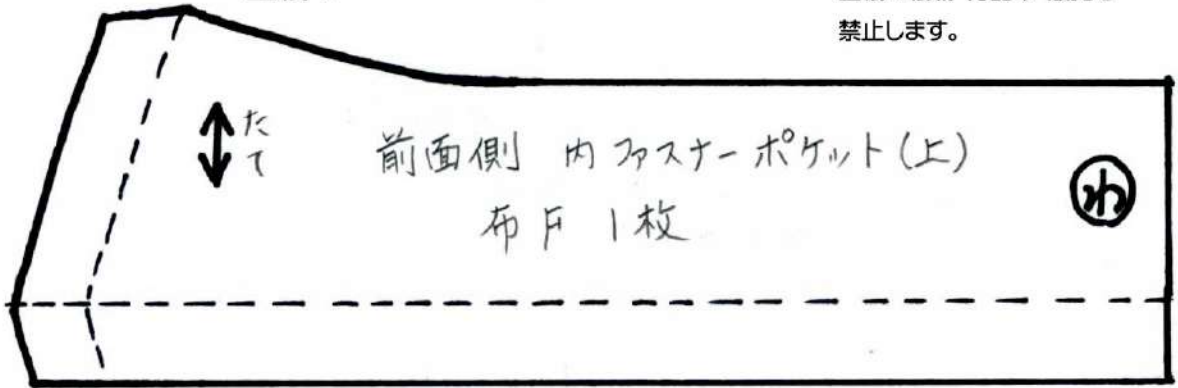 禁止します。
たて
前面側 内ファスナーポケット(上)
布F 1枚
わ